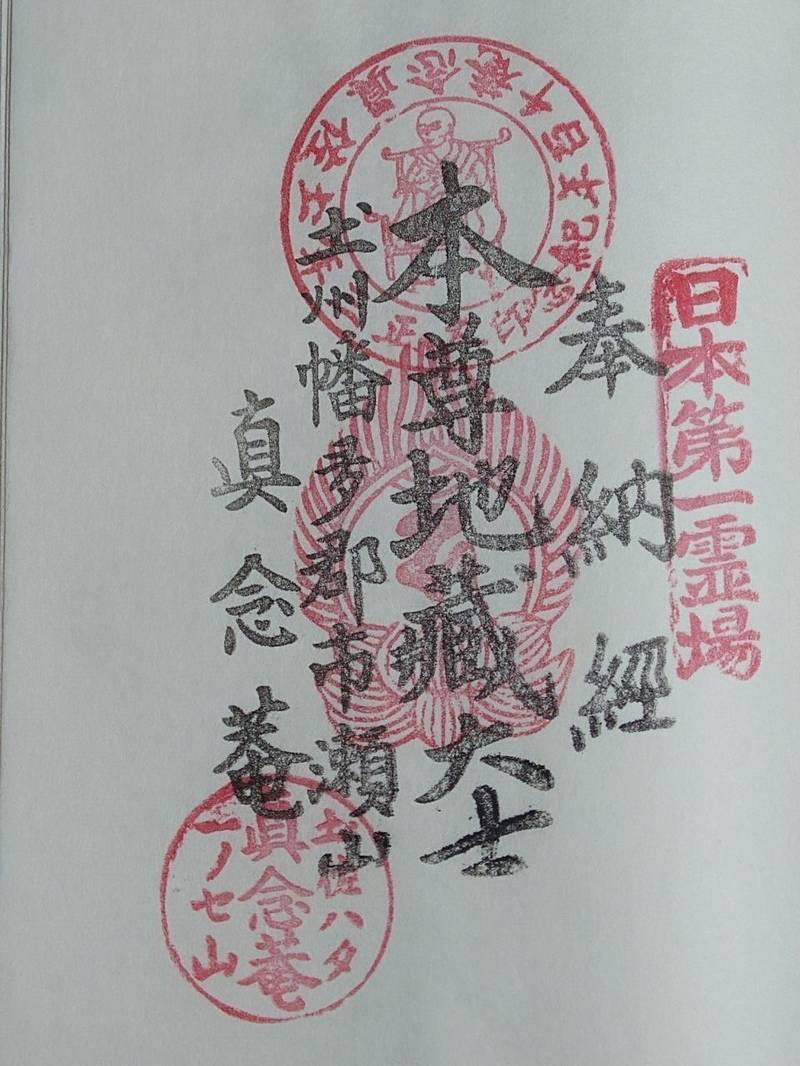 日本第一霊場
奉納經
本尊地藏大士
土州幡多郡市瀬山
真念菴
土佐ハタ
眞念菴
一ノセ山